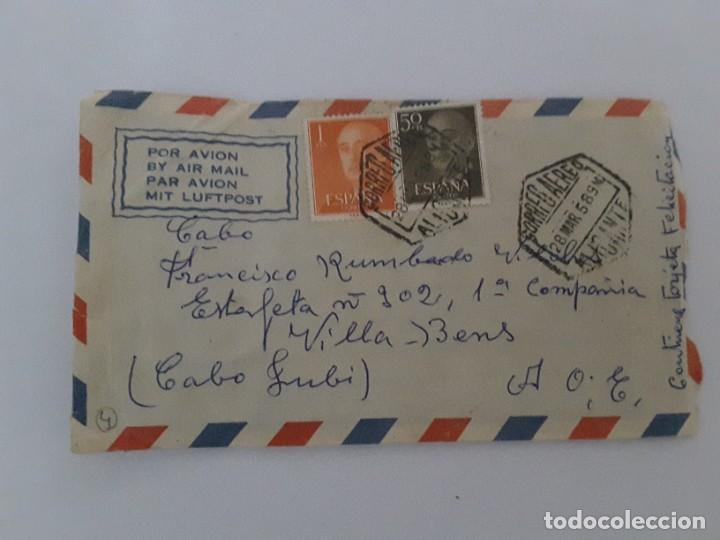 POR AVION
BY AIR MAIL
PAR AVION
MIT LUFTPOST
1
ESPAÑA
50
ESPAÑA
CORREO AEREO
28 MAR 58
ALICANTE
CORREO AEREO
28 MAR 58
ALICANTE
Cabo
Francisco Rumbado
Estafeta nº 302, 1ª Compañia
Villa-Bens
(Cabo Jubi) A O.E.
Contiene Tarjeta Felicitación
4
todocoleccion